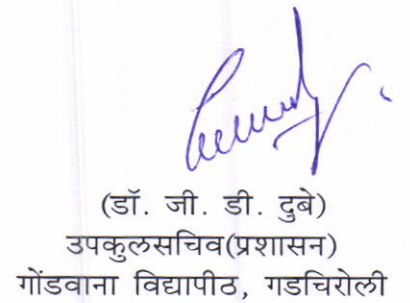 (डॉ. जी. डी. दुबे)
उपकुलसचिव(प्रशासन)
गोंडवाना विद्यापीठ, गडचिरोली